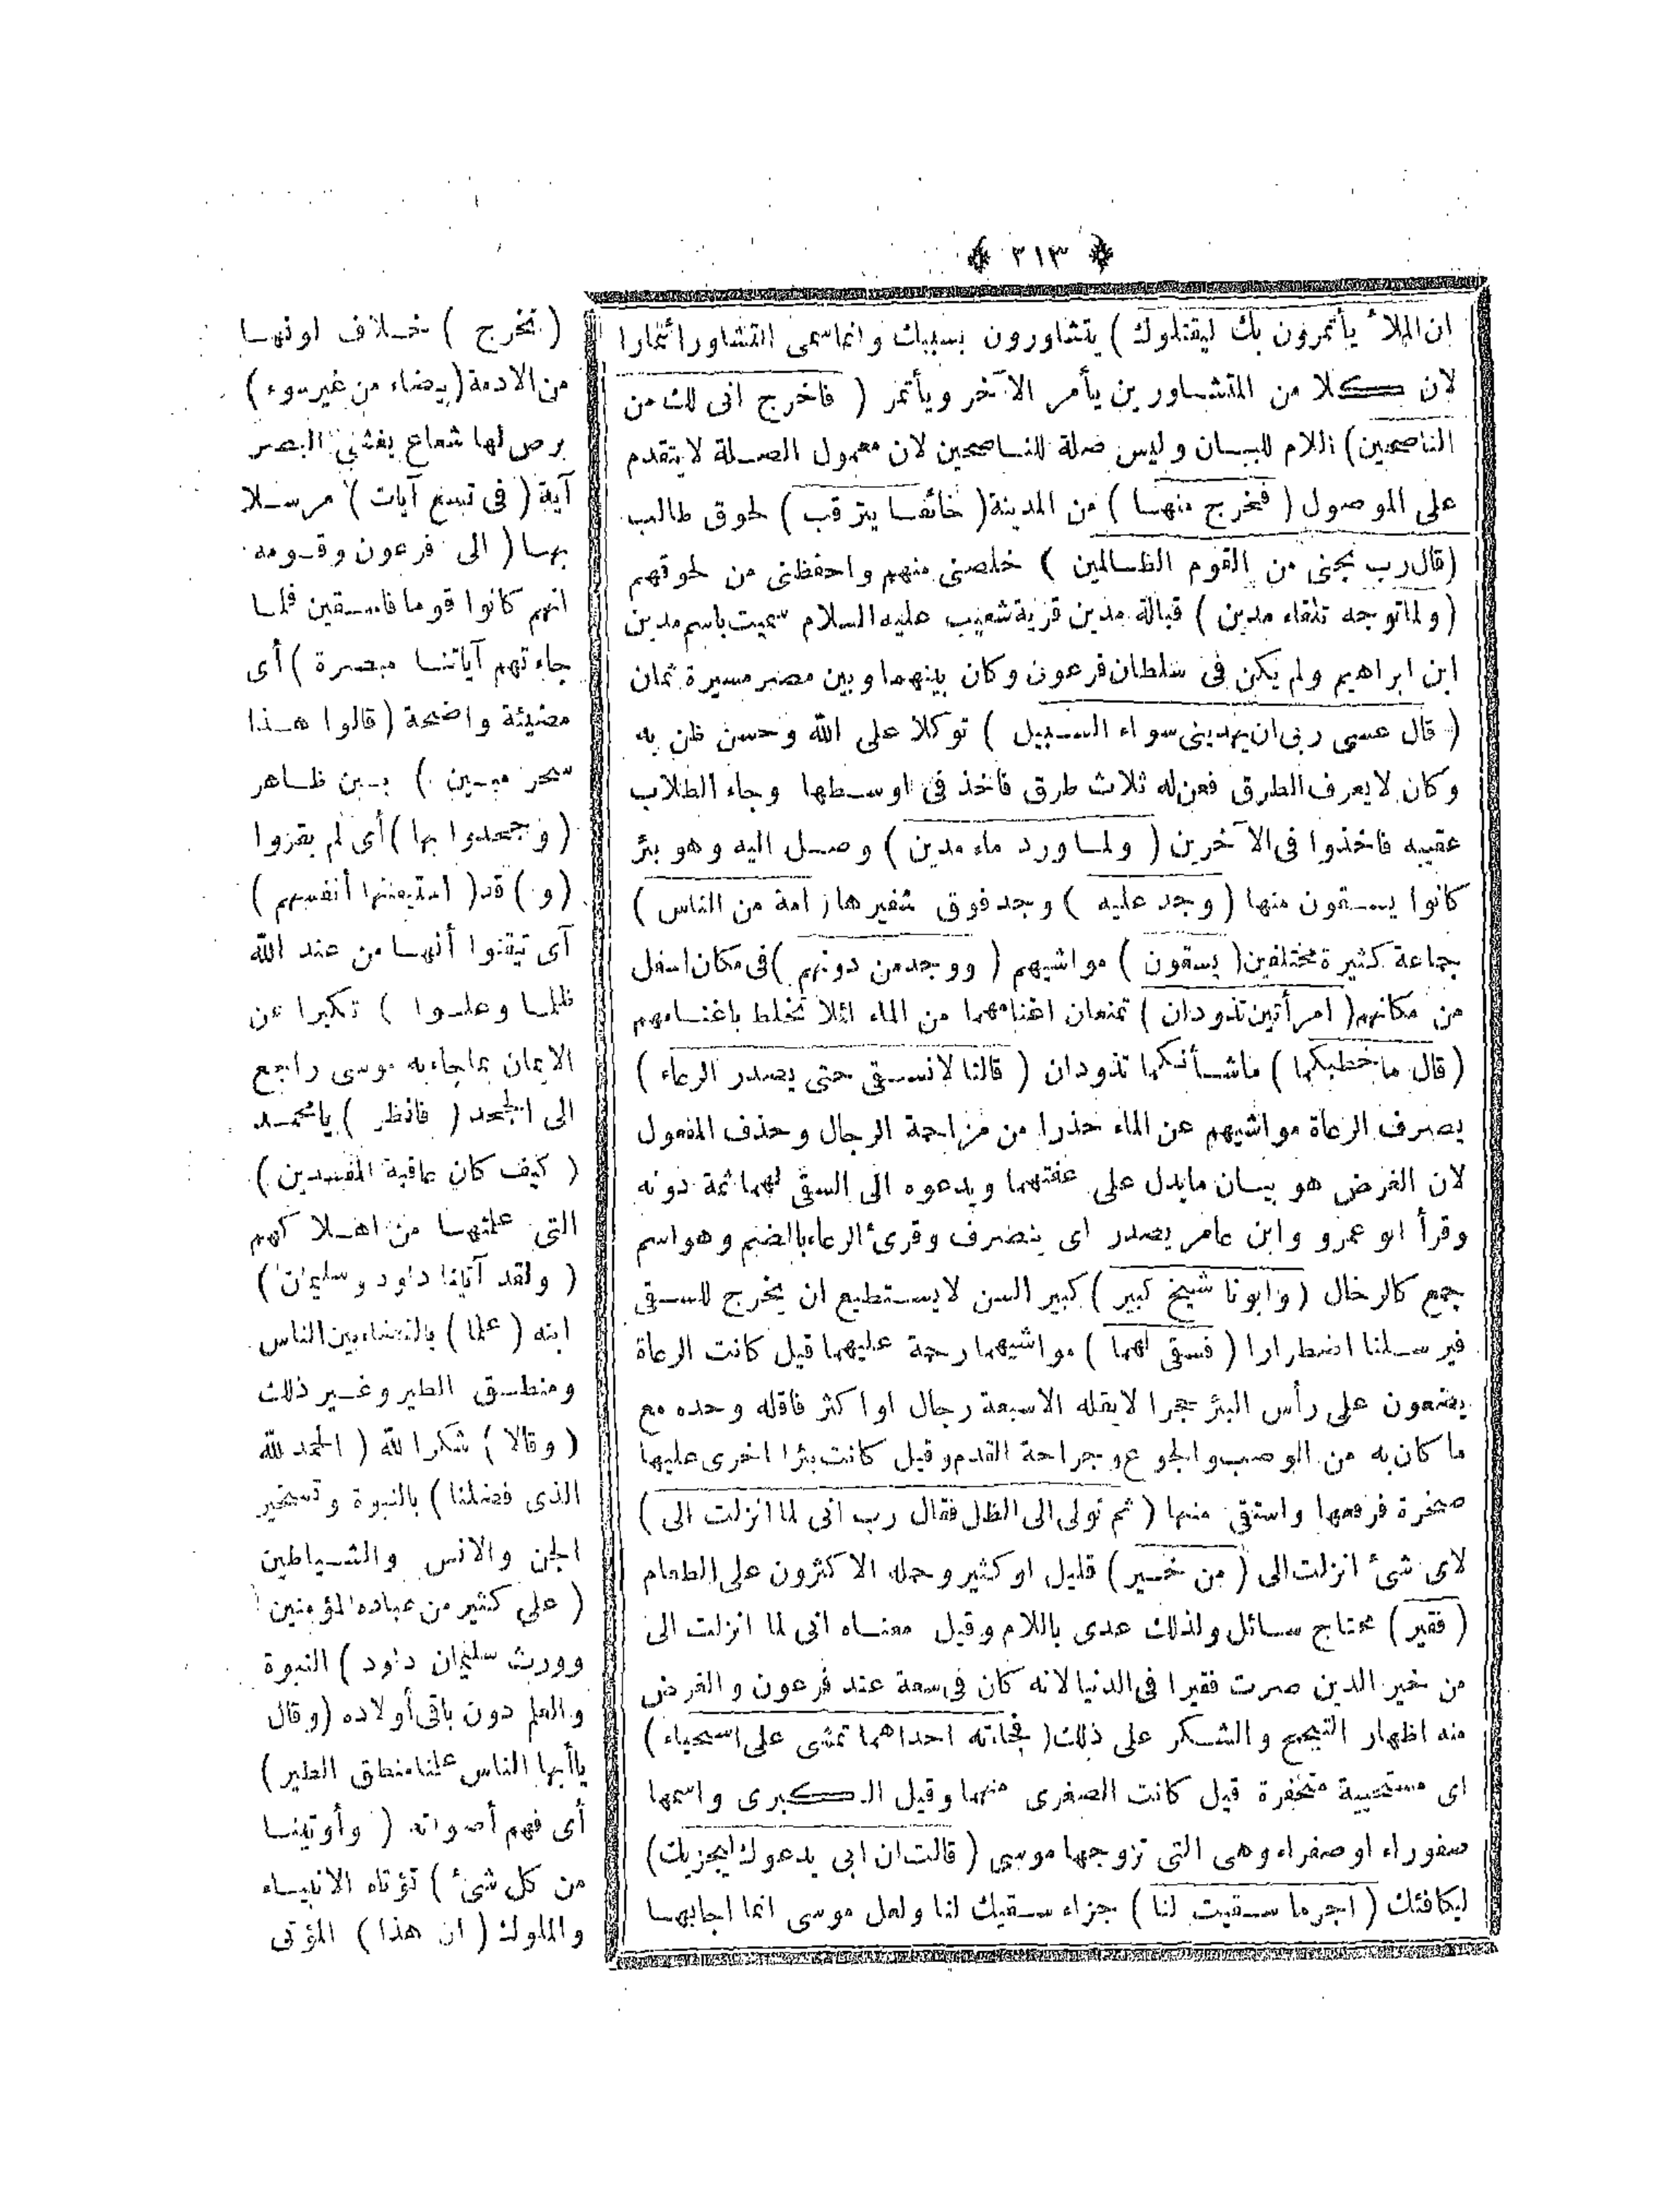 ﴿ ٢١٣ ﴾
ان الملأ يأتمرون بك ليقتلوك ) يتشاورون بسببك وانما سمى التشاور ائتمارا
لان كلا من المتشاورين يأمر الآخر ويأتمر ( فاخرج انى لك من
الناصحين ) اللام للبيان وليس صلة للناصحين لان معمول الصلة لا يتقدم
على الموصول ( فخرج منها ) من المدينة ( خائفا يترقب ) لحوق طالب
( قال رب نجنى من القوم الظالمين ) خلصنى منهم واحفظنى من لحوقهم
( ولما توجه تلقاء مدين ) قبالة مدين قرية شعيب عليه السلام سميت باسم مدين
ابن ابراهيم ولم يكن فى سلطان فرعون وكان بينهما وبين مصر مسيرة ثمان
( قال عسى ربى ان يهدينى سواء السبيل ) توكلا على الله وحسن ظن به
وكان لا يعرف الطرق فعن له ثلاث طرق فاخذ فى اوسطها وجاء الطلاب
عقيبه فاخذوا فى الآخرين ( ولما ورد ماء مدين ) وصل اليه وهو بئر
كانوا يسقون منها ( وجد عليه ) وجد فوق شفيرها ( امة من الناس )
جماعة كثيرة مختلفين ( يسقون ) مواشيهم ( ووجد من دونهم ) فى مكان اسفل
من مكانهم ( امرأتين تذودان ) تمنعان اغنامهما من الماء لئلا تختلط باغنامهم
( قال ما خطبكما ) ما شأنكما تذودان ( قالتا لا نسقى حتى يصدر الرعاء )
يصرف الرعاة مواشيهم عن الماء حذرا من مزاحمة الرجال وحذف المفعول
لان الغرض هو بيان ما يدل على عفتهما ويدعوه الى السقى لهما ثمة دونه
وقرأ ابو عمرو وابن عامر يصدر اى ينصرف وقرئ الرعاء بالضم وهو اسم
جمع كالرخال ( وابونا شيخ كبير ) كبير السن لا يستطيع ان يخرج للسقى
فيرسلنا اضطرارا ( فسقى لهما ) مواشيهما رحمة عليهما قيل كانت الرعاة
يضعون على رأس البئر حجرا لا يقله الا سبعة رجال او اكثر فاقله وحده مع
ما كان به من الوصب والجوع وجراحة القدم وقيل كانت بئرا اخرى عليها
صخرة فرفعها واستقى منها ( ثم تولى الى الظل فقال رب انى لما انزلت الى )
لاى شئ انزلت الى ( من خير ) قليل او كثير وحمله الاكثرون على الطعام
( فقير ) محتاج سائل ولذلك عدى باللام وقيل معناه انى لما انزلت الى
من خير الدين صرت فقيرا فى الدنيا لانه كان فى سعة عند فرعون والغرض
منه اظهار التبجح والشكر على ذلك ( فجاءته احداهما تمشى على استحياء )
اى مستحيية متخفرة قيل كانت الصغرى منهما وقيل الكبرى واسمها
صفوراء او صفراء وهى التى تزوجها موسى ( قالت ان ابى يدعوك ليجزيك )
ليكافئك ( اجر ما سقيت لنا ) جزاء سقيك لنا ولعل موسى انما اجابها
( تخرج ) خلاف لونها
من الادمة ( بيضاء من غير سوء )
برص لها شعاع يغشى البصر
آية ( فى تسع آيات ) مرسلا
بها ( الى فرعون وقومه
انهم كانوا قوما فاسقين فلما
جاءتهم آياتنا مبصرة ) أى
مضيئة واضحة ( قالوا هذا
سحر مبين ) بين ظاهر
( وجحدوا بها ) أى لم يقروا
( و ) قد ( استيقنتها أنفسهم )
أى تيقنوا أنها من عند الله
ظلما وعلوا ) تكبرا عن
الايمان بما جاء به موسى راجع
الى الجحد ( فانظر ) يا محمد
( كيف كان عاقبة المفسدين )
التى علمتها من اهلاكهم
( ولقد آتينا داود وسليمان )
ابنه ( علما ) بالقضاء بين الناس
ومنطق الطير وغير ذلك
( وقالا ) شكرا لله ( الحمد لله
الذى فضلنا ) بالنبوة وتسخير
الجن والانس والشياطين
( على كثير من عباده المؤمنين
وورث سليمان داود ) النبوة
والعلم دون باقى أولاده ( وقال
يا أيها الناس علمنا منطق الطير )
أى فهم أصواته ( وأوتينا
من كل شئ ) تؤتاه الانبياء
والملوك ( ان هذا ) المؤتى